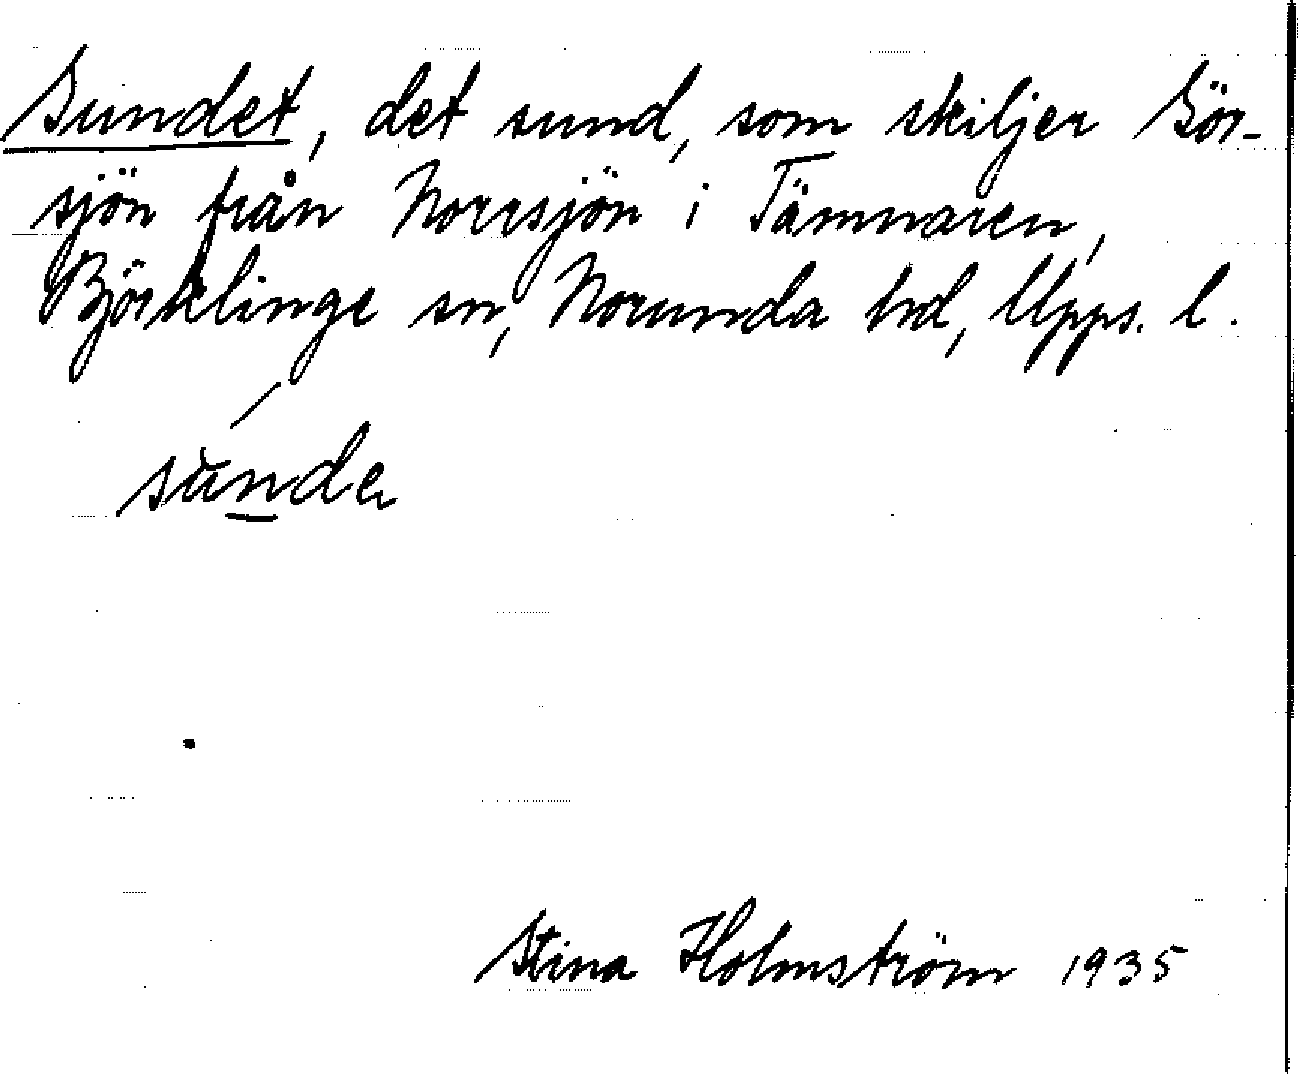 Sundet, det sund, som skiljer Sör-
sjön från Norrsjön i Tämnaren,
Björklinge sn, Norunda hd, Upps. l.
sunde
Stina Holmström 1935